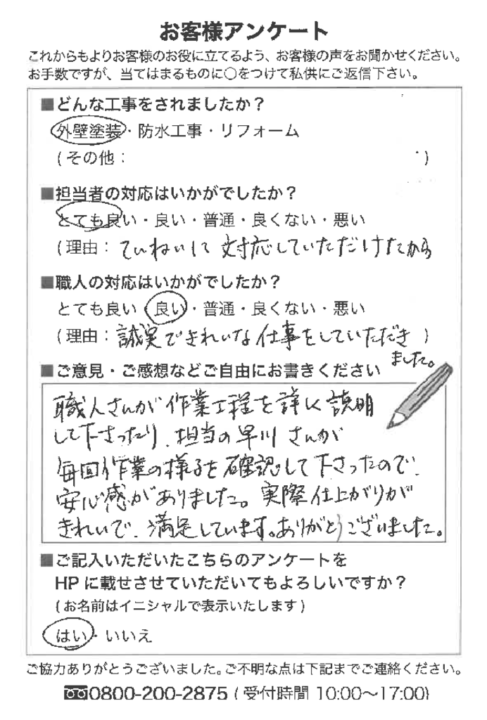 お客様アンケート
これからもよりお客様のお役に立てるよう、お客様の声をお聞かせください。
お手数ですが、当てはまるものに○をつけて私供にご返信下さい。
■どんな工事をされましたか？
外壁塗装・防水工事・リフォーム
(その他： )
■担当者の対応はいかがでしたか？
とても良い・良い・普通・良くない・悪い
(理由：ていねいに対応していただけたから
■職人の対応はいかがでしたか？
とても良い・良い・普通・良くない・悪い
(理由：誠実できれいな仕事をしていただき )
ました。
■ご意見・ご感想などご自由にお書きください
職人さんが作業工程を詳しく説明
して下さったり、担当の早川さんが
毎回作業の様子を確認して下さったので、
安心感がありました。実際仕上がりが
きれいで、満足しています。ありがとうございました。
■ご記入いただいたこちらのアンケートを
HPに載せさせていただいてもよろしいですか？
(お名前はイニシャルで表示いたします)
はい・いいえ
ご協力ありがとうございました。ご不明な点は下記までご連絡ください。
0800-200-2875 (受付時間 10:00～17:00)